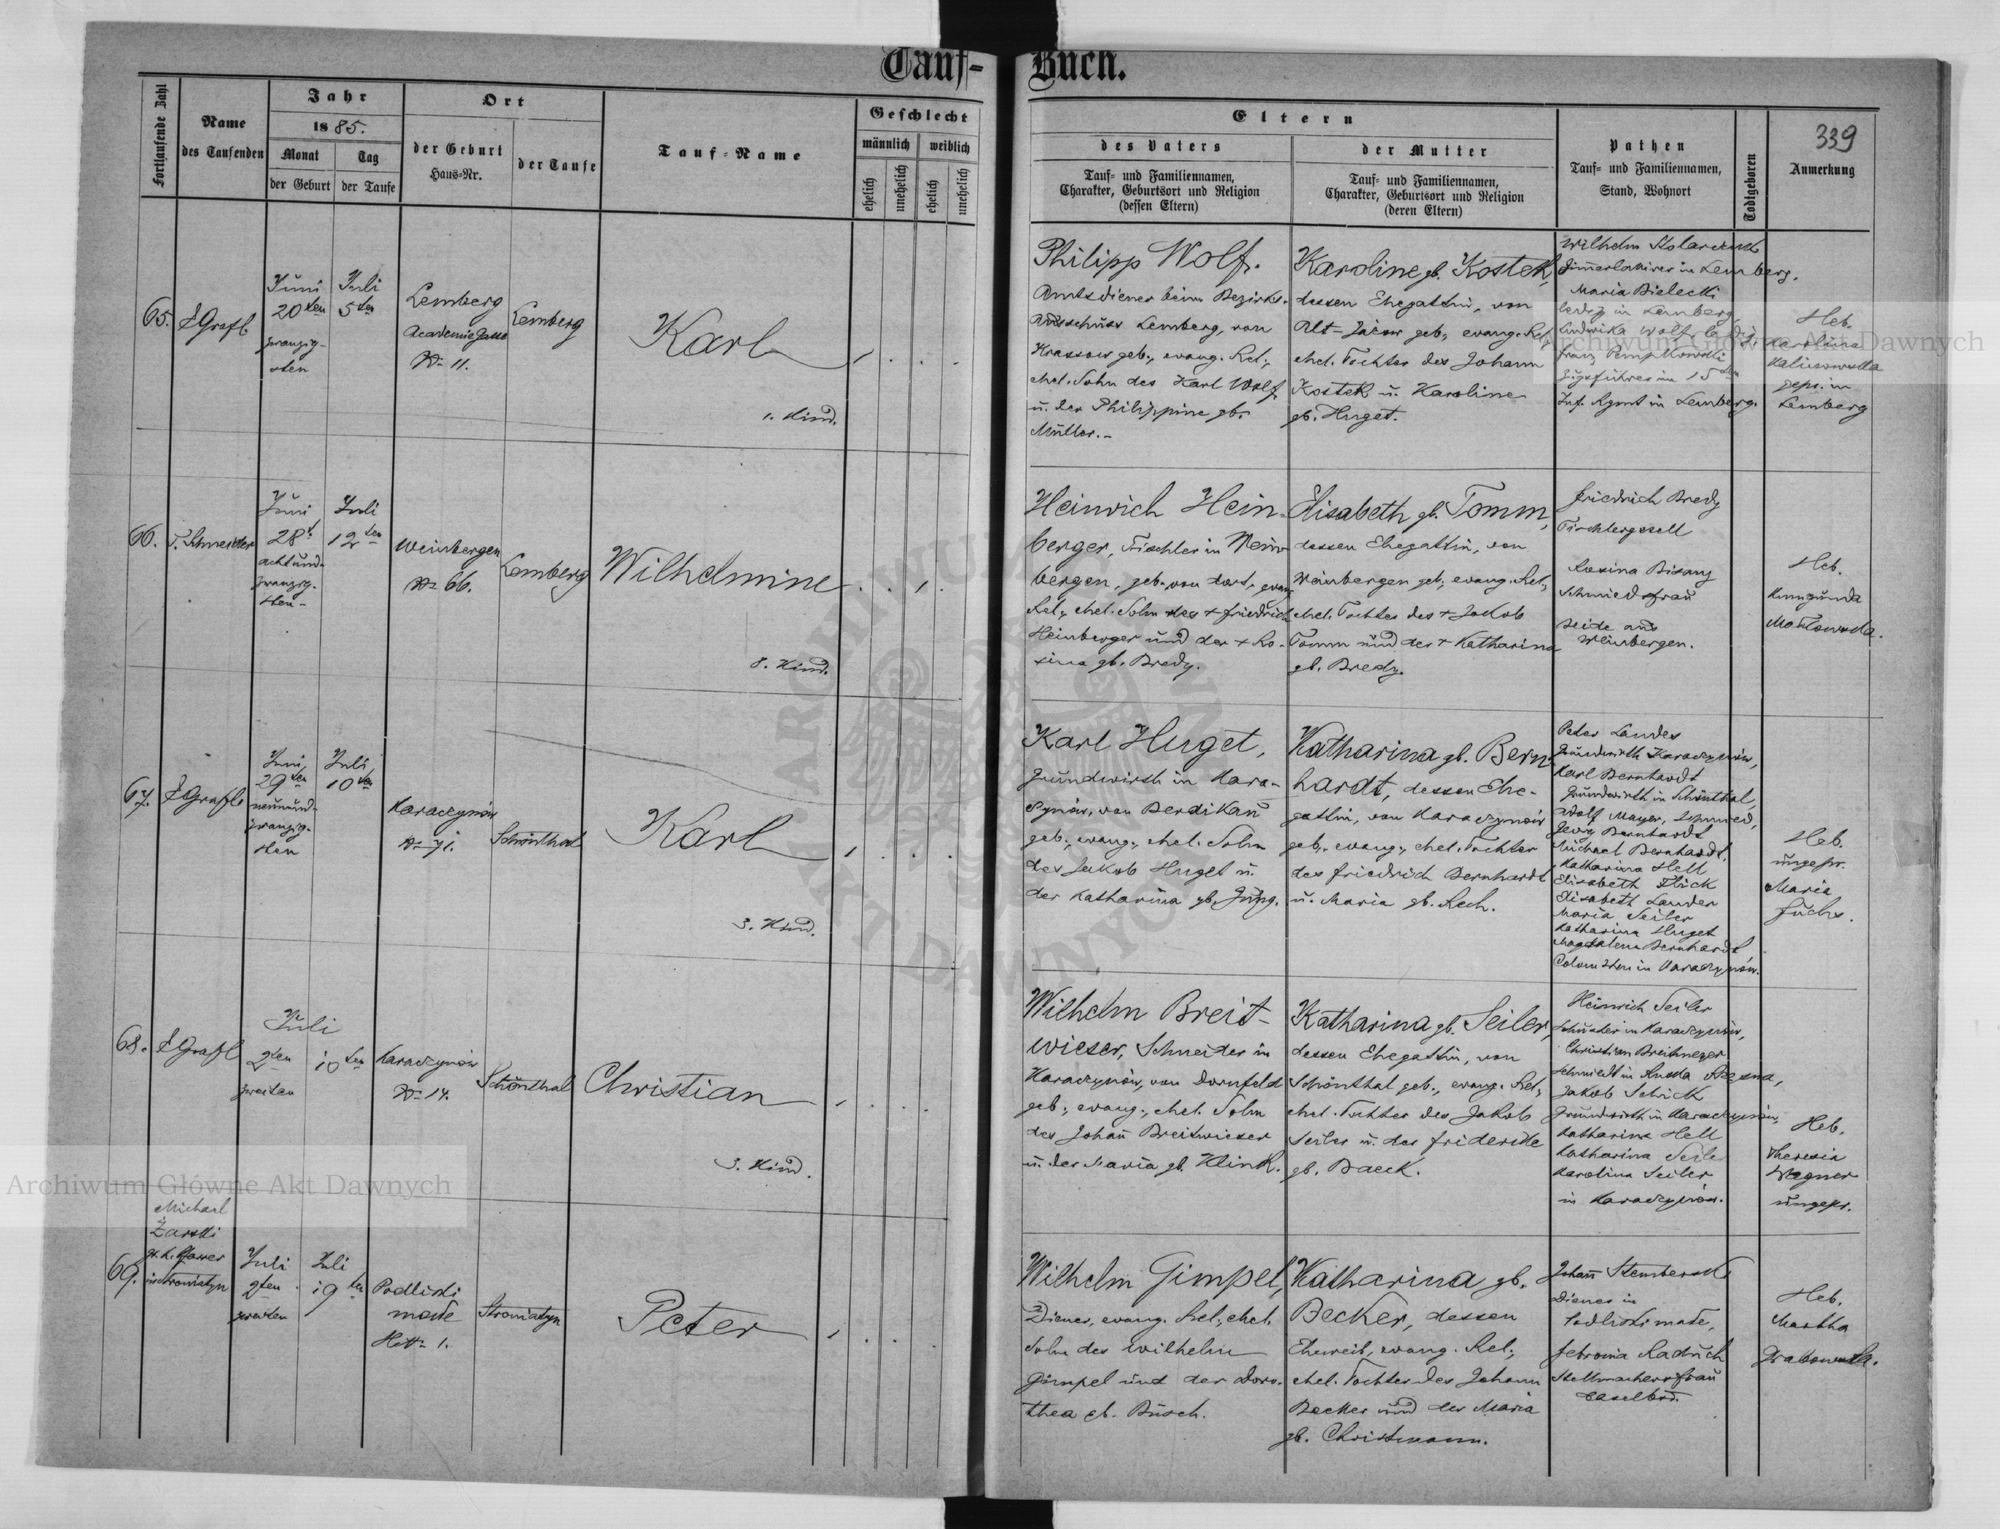 Tauf- Buch.
339
Fortlaufende Zahl
Name
des Taufenden
Jahr
1885.
Monat
der Geburt
Tag
der Taufe
Ort
der Geburt
Haus-Nr.
der Taufe
Tauf-Name
Geschlecht
männlich
weiblich
ehelich
unehelich
ehelich
unehelich
Eltern
des Vaters
Tauf- und Familiennamen,
Charakter, Geburtsort und Religion
(dessen Eltern)
der Mutter
Tauf- und Familiennamen,
Charakter, Geburtsort und Religion
(deren Eltern)
Pathen
Tauf- und Familiennamen,
Stand, Wohnort
Todtgeboren
Anmerkung
65.
E Grafl
Juni
20ten
zwanzig-
sten
Juli
5ten
Lemberg
Academie Gasse
No 11.
Lemberg
Karl
1. Kind.
Philipp Wolf.
Amtsdiener beim Bezirks-
Ausschuss Lemberg, von
Krassow geb., evang. Rel.,
ehel. Sohn des Karl Wolf
u. der Philippine gb.
Müller.-
Karoline gb. Kostek,
dessen Ehegattin, von
Alt-Jažow geb., evang. Rel.
ehel. Tochter des Johann
Kostek u. Karoline
gb. Huget.
Wilhelm
in Lemberg.
Maria Bielecki
ledig in Lemberg,
Ludwika Wolf
Franz
Zugsführer im 15ten
Inf. Rgmt in Lemberg.
Heb.
Karolina
gepr. in
Lemberg
66.
T. Schneider
Juni
28t
achtund-
zwanzig-
sten-
Juli
12ten
Weinbergen
No 66.
Lemberg
Wilhelmine
8. Kind.
Heinrich Hein-
berger, Tischler in Wein-
bergen, geb. von dort, evang.
Rel., ehel. Sohn des + Friedrich
Heinberger und der + Ro-
sina gb. Bredy.
Elisabeth gb. Tomm,
dessen Ehegattin, von
Weinbergen geb., evang. Rel.,
ehel. Tochter des + Jakob
Tomm und der + Katharina
gb. Bredy.
Friedrich Bredy
Tischlergesell
Rosina Bisanz
Schmiedsfrau
beide aus
Weinbergen.
Heb.
Kunigunda
67.
E Grafl
Juni
29ten
neunund-
zwanzig-
sten
Juli
10ten
Karaczynów
No 71.
Schönthal
Karl
3. Kind.
Karl Huget,
Grundwirth in Kara-
czynów, von Berdikau
geb., evang., ehel. Sohn
des Jakob Huget u.
der Katharina gb. Jung.
Katharina gb. Bern-
hardt, dessen Ehe-
gattin, von Karaczynów
geb., evang., ehel. Tochter
des Friedrich Bernhardt
u. Maria gb. Rech.
Peter Lander
Grundwirth Karaczynów,
Karl Bernhardt
Grundwirth in Schönthal,
Wolf Mayer, Schmied,
Georg Bernhardt
Michael Bernhardt,
Katharina Hell
Elisabeth Flick
Elisabeth Lander
Maria Seiler
Katharina Huget
Magdalena Bernhardt
Colonisten in Karaczynów.
Heb.
ungepr.
Maria
Fuchs.
68.
E Grafl
Juli
2ten
zweiten
10ten
Karaczynów
No 14.
Schönthal
Christian
3. Kind.
Wilhelm Breit-
wieser, Schneider in
Karaczynów, von Dornfeld
geb., evang., ehel. Sohn
des Johann Breitwieser
u. der Maria gb. Klink.
Katharina gb. Seiler,
dessen Ehegattin, von
Schönthal geb., evang. Rel.,
ehel. Tochter des Jakob
Seiler u. der Friderike
gb. Baeck.
Heinrich Seiler
Schuster in Karaczynów,
Christian
Schmiedt in
Jakob Schick
Grundwirth in Karaczynów,
Katharina Hell
Katharina Seiler
Karolina Seiler
in Karaczynów.
Heb.
Theresia
Wagner
ungepr.
69.
Michael
Żarski
gr. k. Pfarrer
in Stroniatyn
Juli
2ten
zweiten
Juli
19ten
Podliski
małe
Hs No 1.
Stroniatyn
Peter
Wilhelm Gimpel,
Diener, evang. Rel., ehel.
Sohn des Wilhelm
Gimpel und der Doro-
thea gb. Busch.
Katharina gb.
Becker, dessen
Eheweib, evang. Rel.,
ehel. Tochter des Johann
Becker und der Maria
gb. Christmann.
Johann Stemberski
Diener in
Podliski małe,
Febronia Raduch
Stellmachersfrau
Heb.
Martha
Grabowska.
Archiwum Główne Akt Dawnych
Archiwum Główne Akt Dawnych
ARCHIWUM GŁÓWNE AKT DAWNYCH